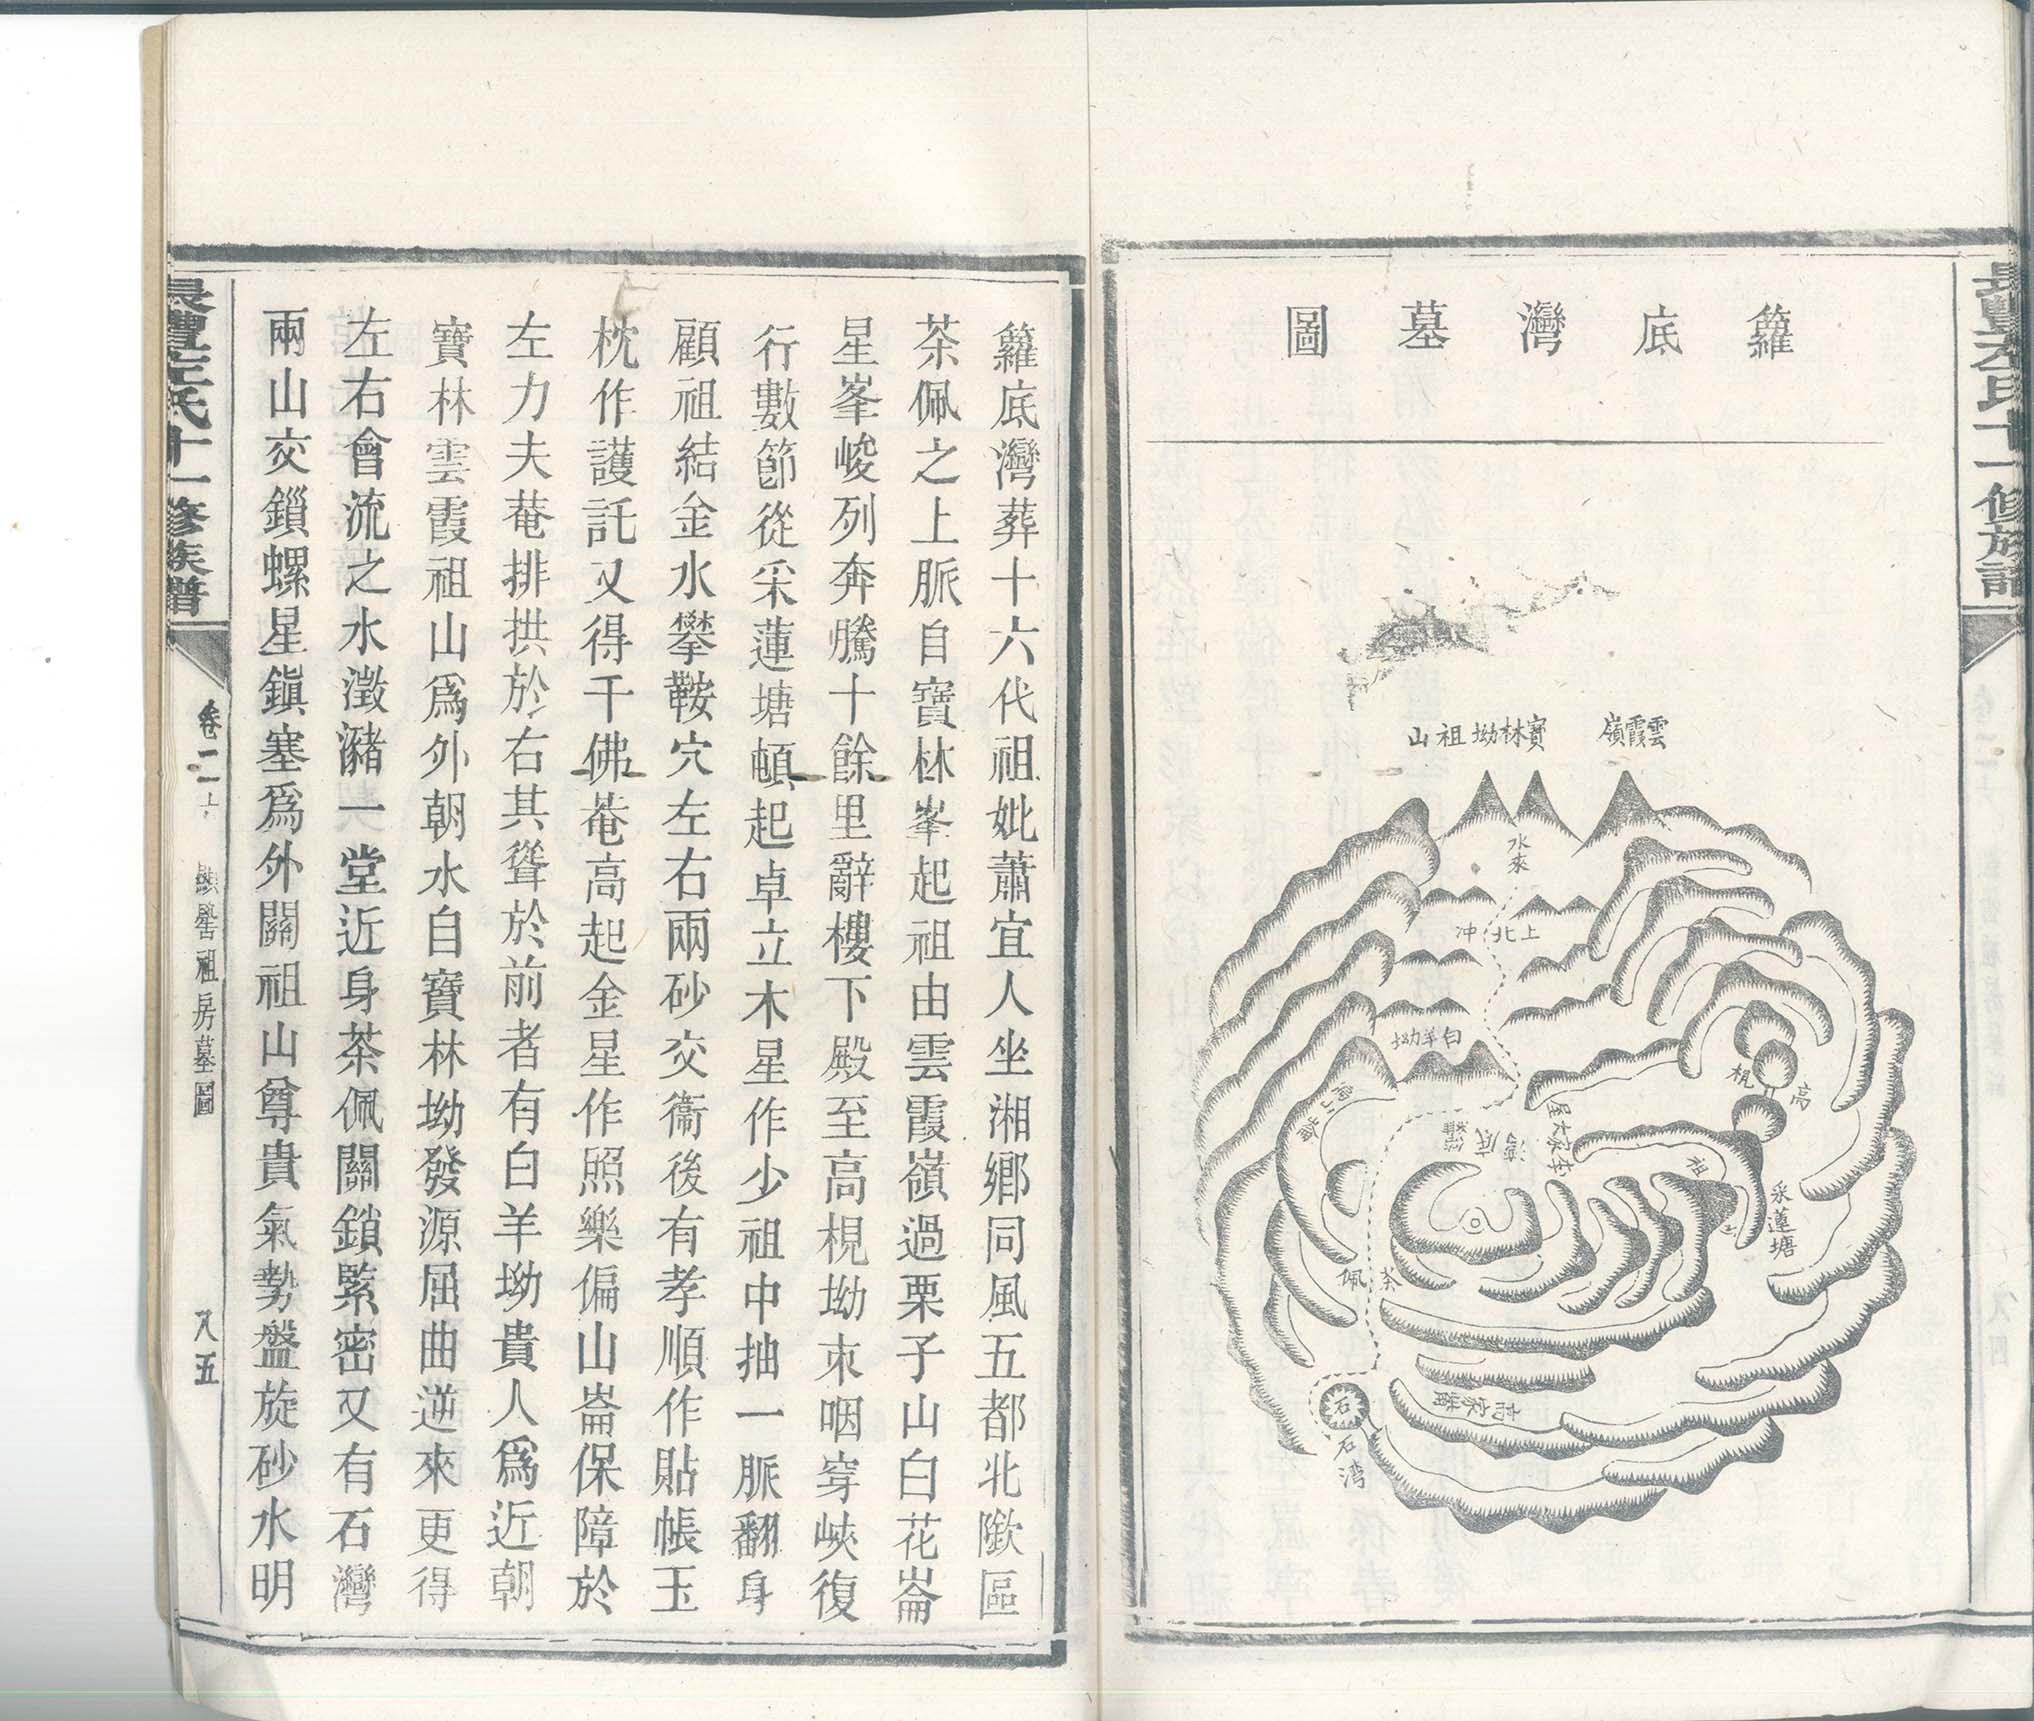 籮底灣墓圖
雲霞嶺
寶林坳祖山
水來
上北冲
白羊坳
籮底灣
高枧
祖
采蓮塘
茶佩
石
石湾
籮底灣葬十六代祖妣蕭宜人坐湘鄉同風五都北歐區
茶佩之上脈自寶林峯起祖由雲霞嶺過栗子山白花崙
星峯峻列奔騰十餘里辭樓下殿至高梘坳朿咽穿峽復
行數節從采蓮塘頓起卓立木星作少祖中抽一脈翻身
顧祖結金水攀鞍穴左右兩砂交衞後有孝順作貼帳玉
枕作護託又得千佛菴高起金星作照樂偏山崙保障於
左力夫菴排拱於右其聳於前者有白羊坳貴人爲近朝
寶林雲霞祖山爲外朝水自寶林坳發源屈曲逆來更得
左右會流之水澂瀦一堂近身茶佩關鎖緊密又有石灣
兩山交鎻螺星鎭塞爲外關祖山尊貴氣勢盤旋砂水明
十一修族譜
卷二上
祖房墓圖
八五